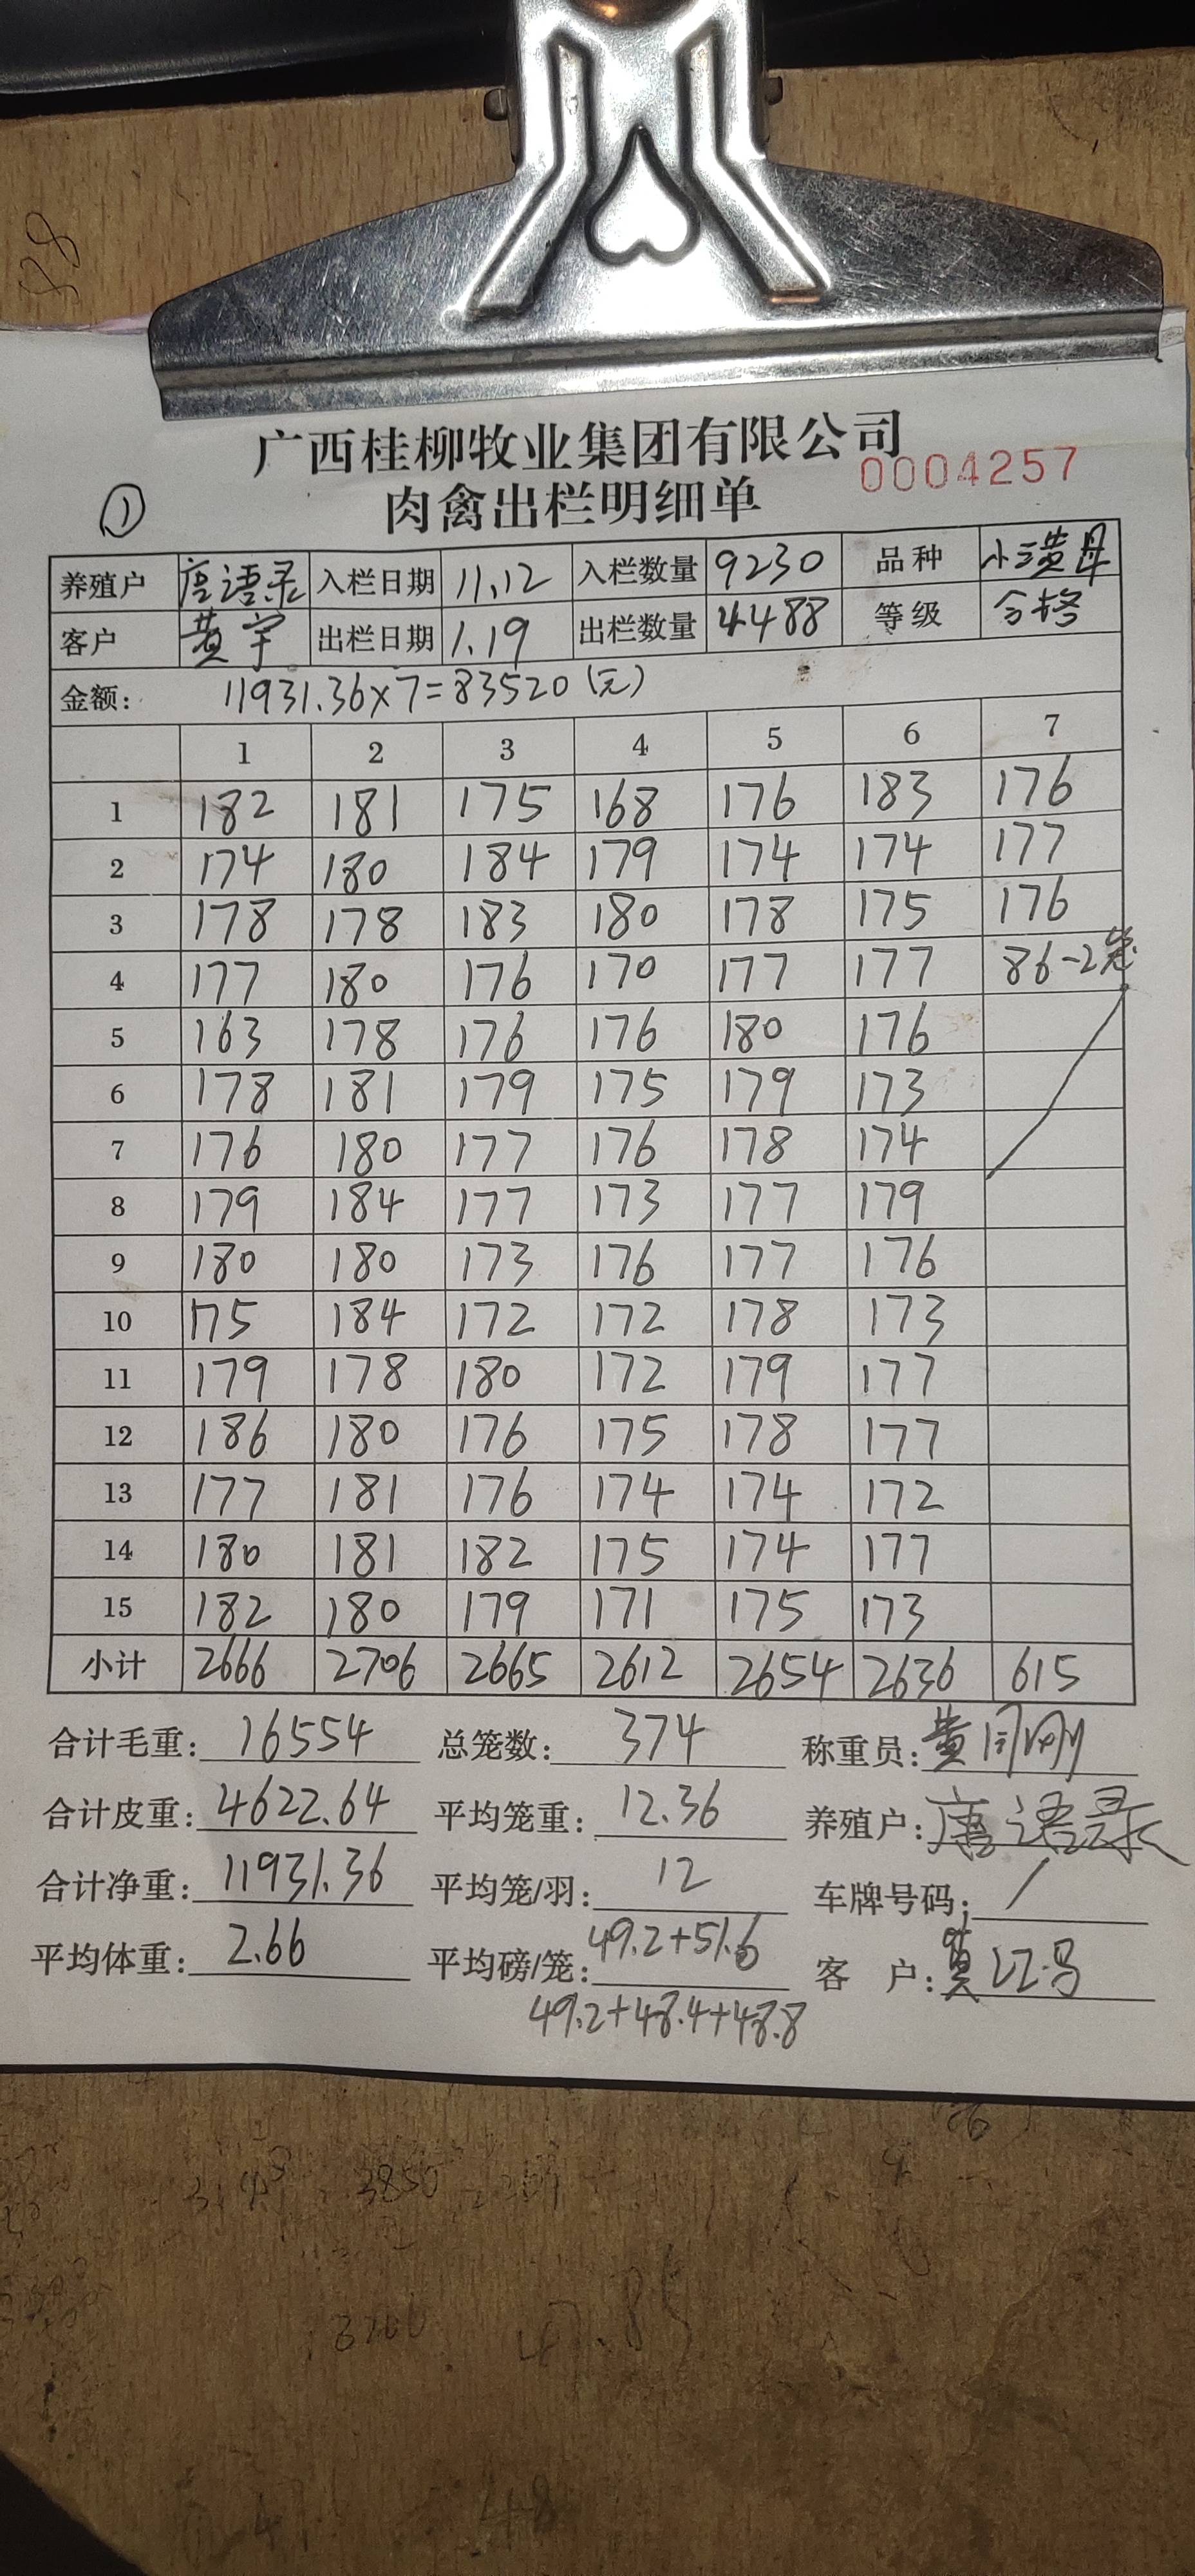 广西桂柳牧业集团有限公司
0004257
① 肉禽出栏明细单
养殖户 唐语录 入栏日期 11.12 入栏数量 9230 品种 小三黄母
客户 黄宇 出栏日期 1.19 出栏数量 4488 等级 合格
金额: 11931.36×7=83520(元)
1 2 3 4 5 6 7
1 182 181 175 168 176 183 176
2 174 180 184 179 174 174 177
3 178 178 183 180 178 175 176
4 177 180 176 170 177 177 86-2笼
5 163 178 176 176 180 176
6 178 181 179 175 179 173
7 176 180 177 176 178 174
8 179 184 177 173 177 179
9 180 180 173 176 177 176
10 175 184 172 172 178 173
11 179 178 180 172 179 177
12 186 180 176 175 178 177
13 177 181 176 174 174 172
14 180 181 182 175 174 177
15 182 180 179 171 175 173
小计 2666 2706 2665 2612 2654 2636 615
合计毛重: 16554 总笼数: 374 称重员: 黄同刚
合计皮重: 4622.64 平均笼重: 12.36 养殖户: 唐语录
合计净重: 11931.36 平均笼/羽: 12 车牌号码: /
平均体重: 2.66 平均磅/笼: 49.2+51.6 客 户:
49.2+48.4+48.8